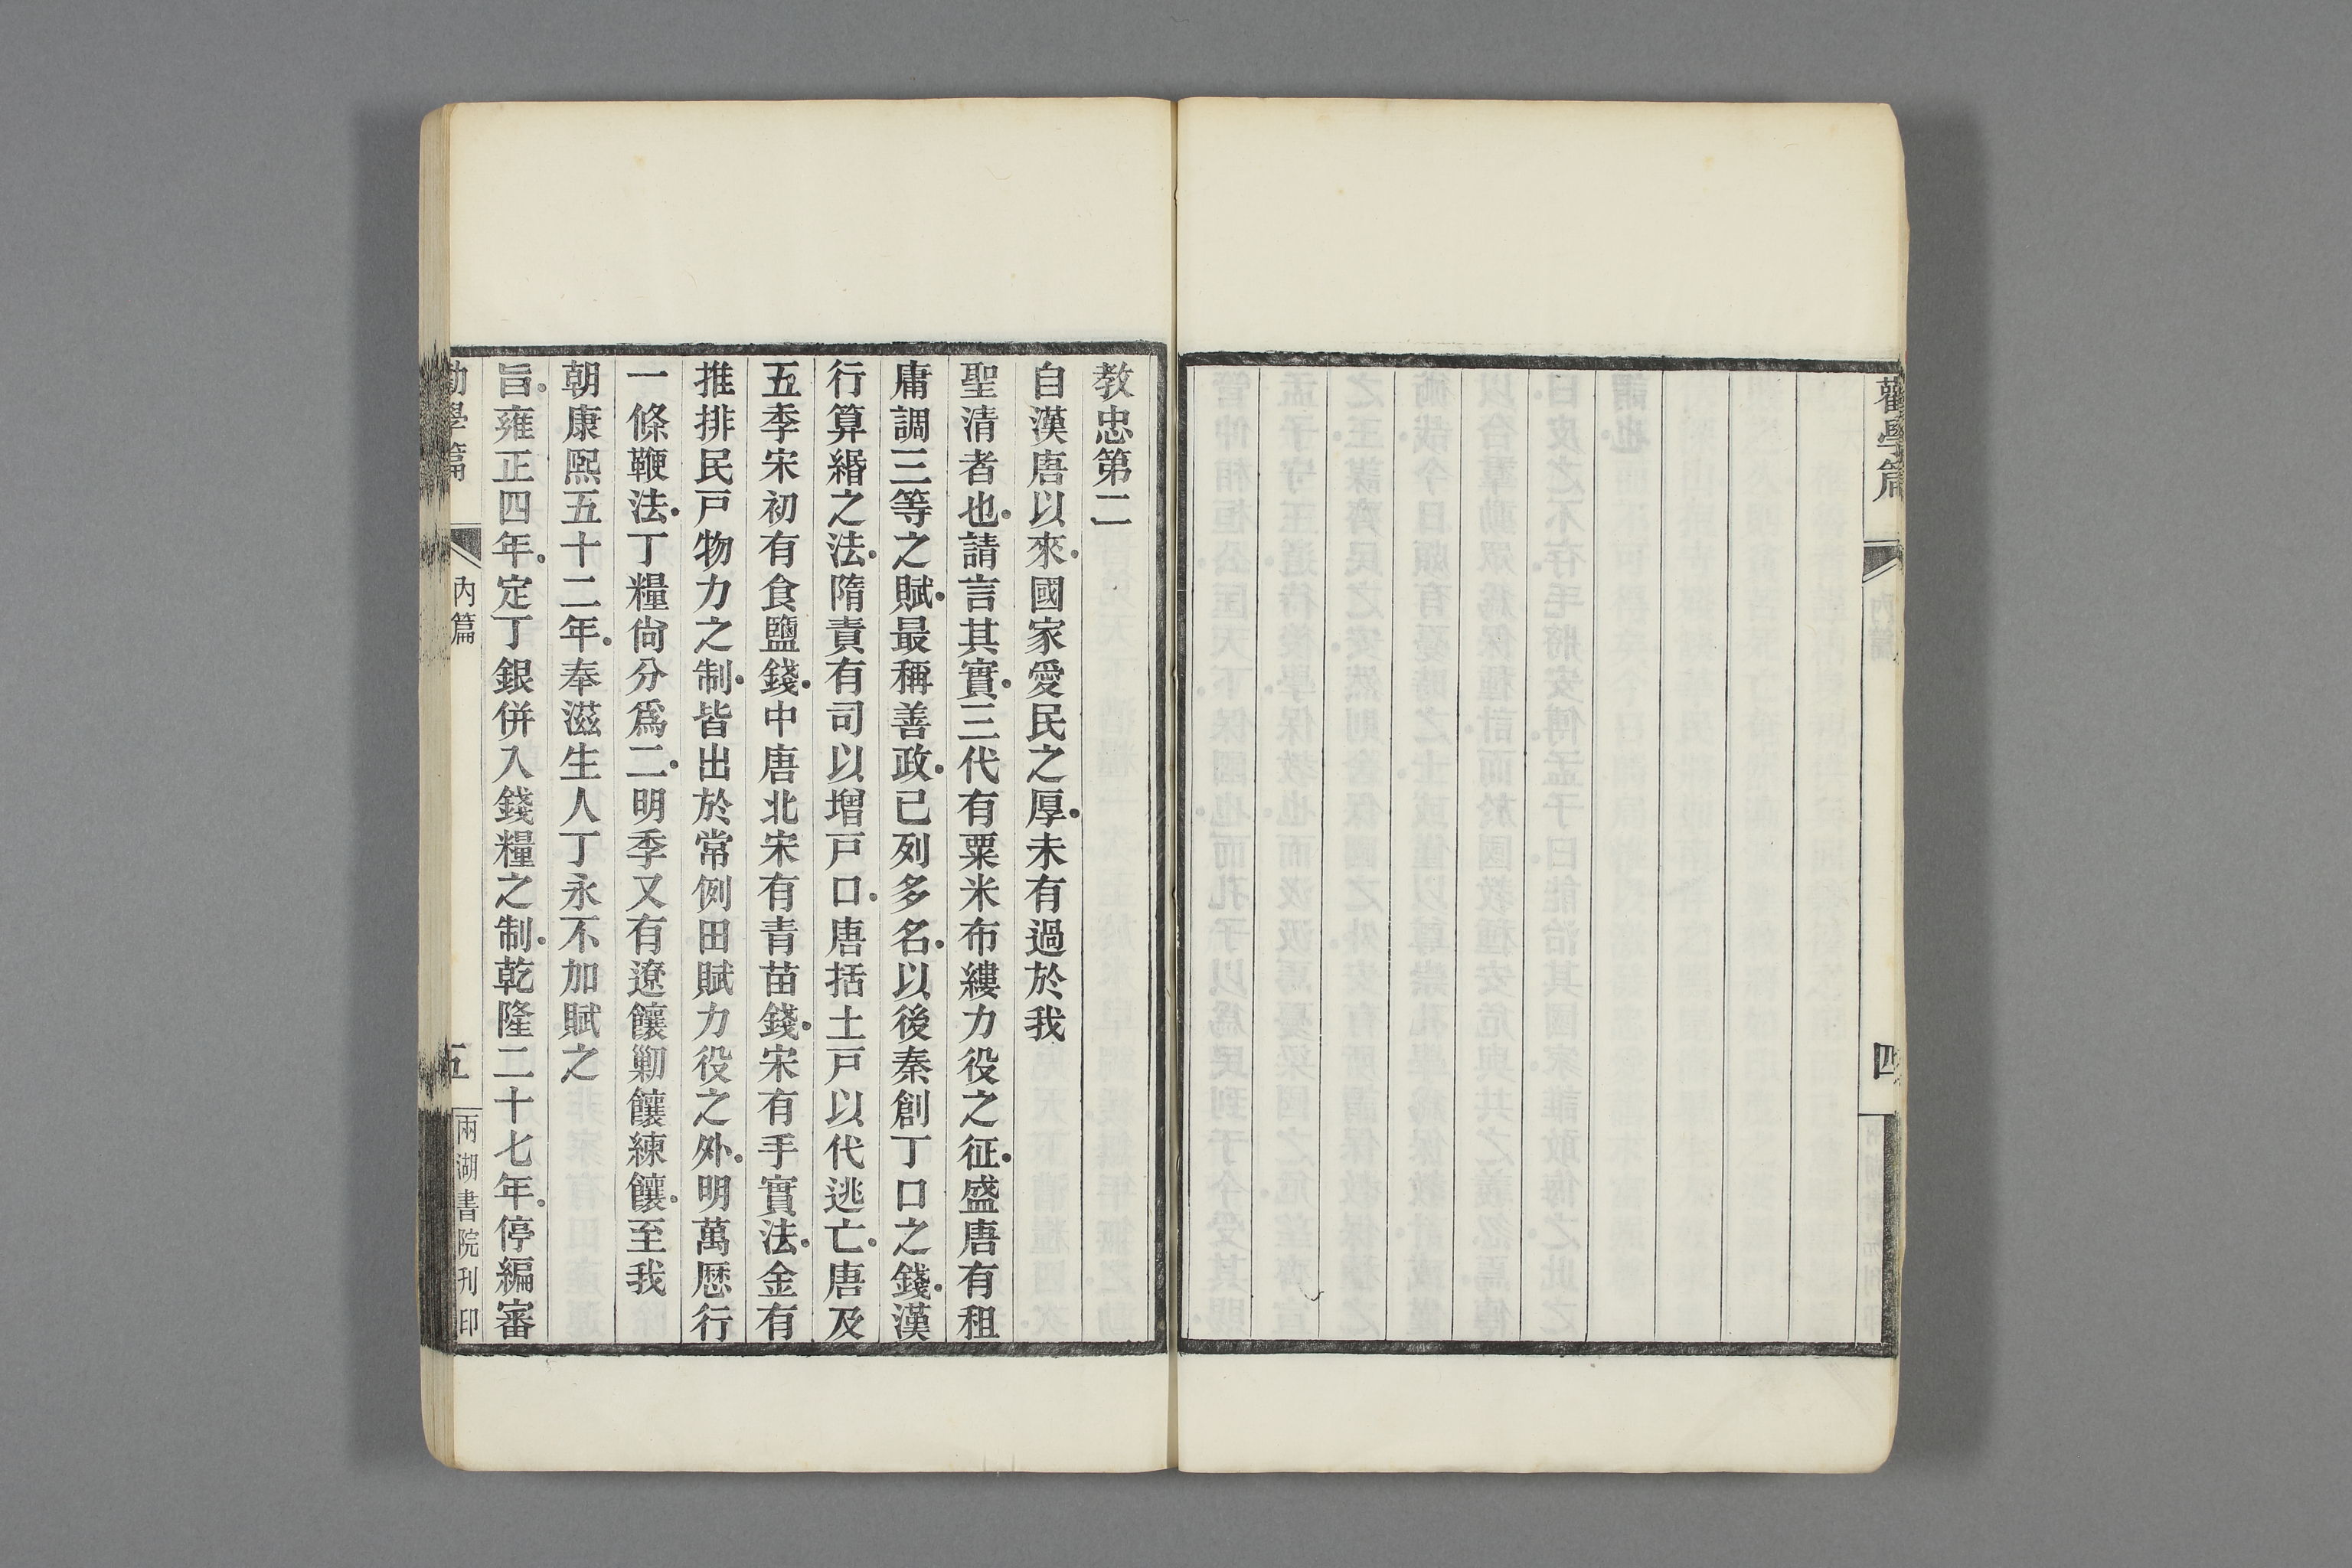 勸學篇
內篇
四
教忠第二
自漢唐以來國家愛民之厚未有過於我
聖清者也請言其實三代有粟米布縷力役之征盛唐有租
庸調三等之賦最稱善政已列多名以後秦創丁口之錢漢
行算緡之法隋責有司以增戸口唐括土戸以代逃亡唐及
五季宋初有食鹽錢中唐北宋有青苗錢宋有手實法金有
推排民戸物力之制皆出於常例田賦力役之外明萬歷行
一條鞭法丁糧尙分爲二明季又有遼饟勦饟練饟至我
朝康熙五十二年奉滋生人丁永不加賦之
旨雍正四年定丁銀併入錢糧之制乾隆二十七年停編審
勸學篇
內篇
五
兩湖書院刊印